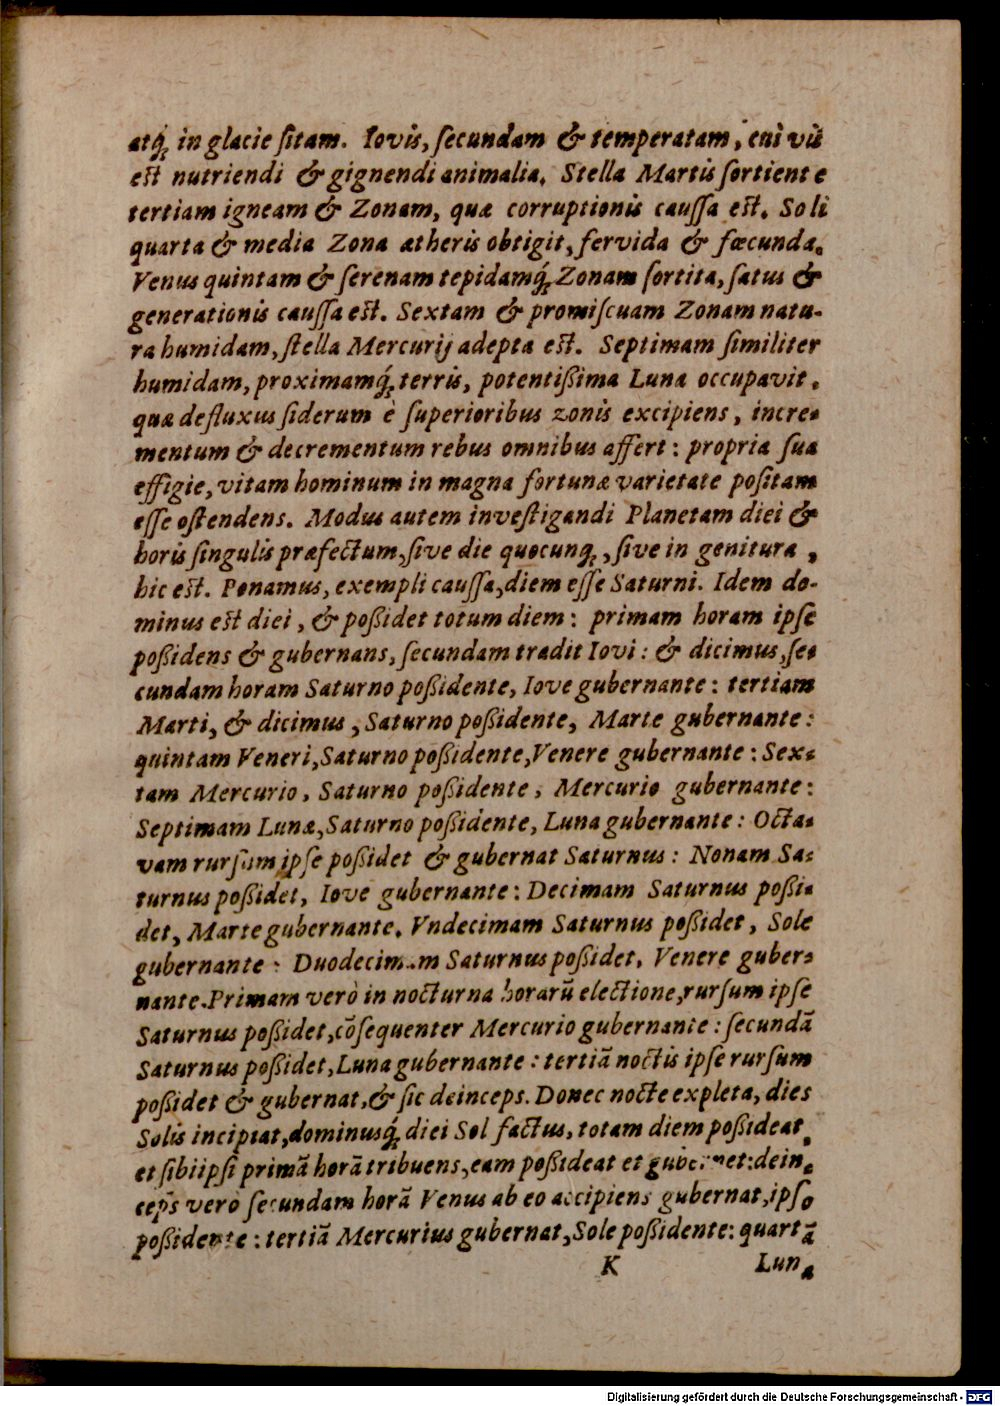 atq́; in glacie sitam. Iovis, secundam & temperatam, cui vis
est nutriendi & gignendi animalia. Stella Martis sortient e
tertiam igneam & Zonam, quæ corruptionis caussa est. Soli
quarta & media Zona ætheris obtigit, fervida & fœcunda.
Venus quintam & serenam tepidamq́; Zonam sortita, satus &
generationis caussa est. Sextam & promiscuam Zonam natu-
ra humidam, stella Mercurij adepta est. Septimam similiter
humidam, proximamq́; terris, potentißima Luna occupavit.
quæ defluxus siderum è superioribus zonis excipiens, incre-
mentum & decrementum rebus omnibus affert: propria sua
effigie, vitam hominum in magna fortunæ varietate positam
esse ostendens. Modus autem investigandi Planetam diei &
horis singulis præfectum, sive die quocunq;, sive in genitura,
hic est. Ponamus, exempli caussa, diem esse Saturni. Idem do-
minus est diei, & poßidet totum diem: primam horam ipse
poßidens & gubernans, secundam tradit Iovi: & dicimus, se-
cundam horam Saturno poßidente, Iove gubernante: tertiam
Marti, & dicimus, Saturno poßidente, Marte gubernante:
quintam Veneri, Saturno poßidente, Venere gubernante: Sex-
tam Mercurio, Saturno poßidente, Mercurio gubernante:
Septimam Lunæ, Saturno poßidente, Luna gubernante: Octa-
vam rursum ipse poßidet & gubernat Saturnus: Nonam Sa-
turnus poßidet, Iove gubernante: Decimam Saturnus poßi-
det, Marte gubernante. Vndecimam Saturnus poßidet, Sole
gubernante: Duodecimam Saturnus poßidet, Venere guber-
nante. Primam verò in nocturna horarũ electione, rursum ipse
Saturnus poßidet, cõsequenter Mercurio gubernante: secundã
Saturnus poßidet, Luna gubernante: tertiã noctis ipse rursum
poßidet & gubernat, & sic deinceps. Donec nocte expleta, dies
Solis incipiat, dominusq́; diei Sol factus, totam diem poßideat,
et sibiipsi primã horã tribuens, eam poßideat et gubernet: dein-
ceps vero secundam horã Venus ab eo accipiens gubernat, ipso
poßidente: tertiã Mercurius gubernat, Sole poßidente: quartã
K Luna
Digitalisierung gefördert durch die Deutsche Forschungsgemeinschaft - DFG